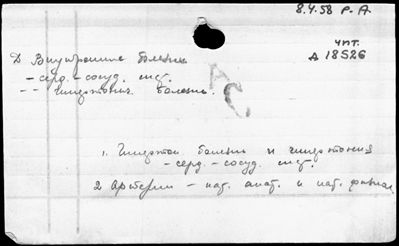 8.4.58 Р.А.
чпт.
Д 18526
Д Внутренние болезни
– серд. – сосуд. сист.
– – гипертонич. болезнь.
АС
1. Гипертон. болезнь и гипертония
– серд. – сосуд. сист.
2 Артерии – пат. анат. и пат. физиол.